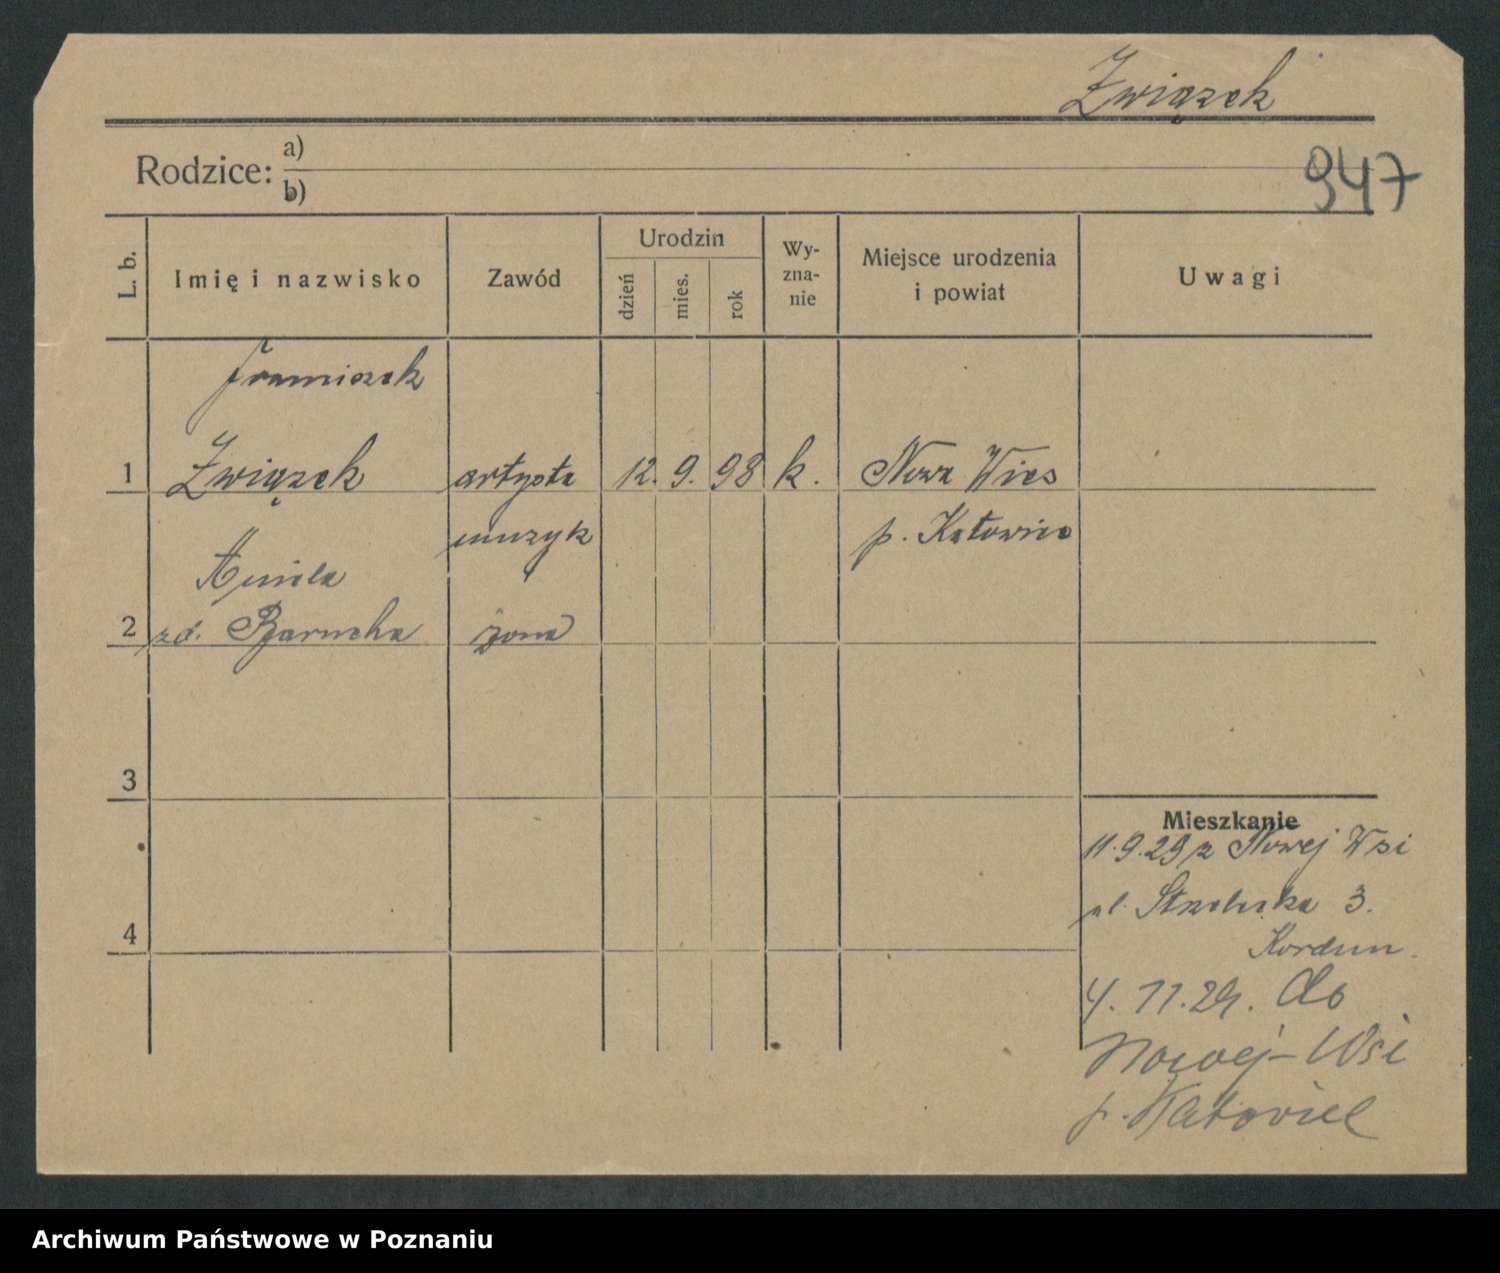 Związek
947
Rodzice: a)
b)
L. b.
Imię i nazwisko
Zawód
Urodzin
dzień
mies.
rok
Wy-
zna-
nie
Miejsce urodzenia
i powiat
Uwagi
Franciszek
1 Związek artysta 12. 9. 98 k. Nowa Wies
muzyk p. Katowice
Aniela
2 zd. Barucha żona
3
4
Mieszkanie
11.9.29 z Nowej Wsi
ul. Strzelecka 3.
Kordun.
4. 11. 29. do
Nowej-Wsi
p. Katowice
Archiwum Państwowe w Poznaniu